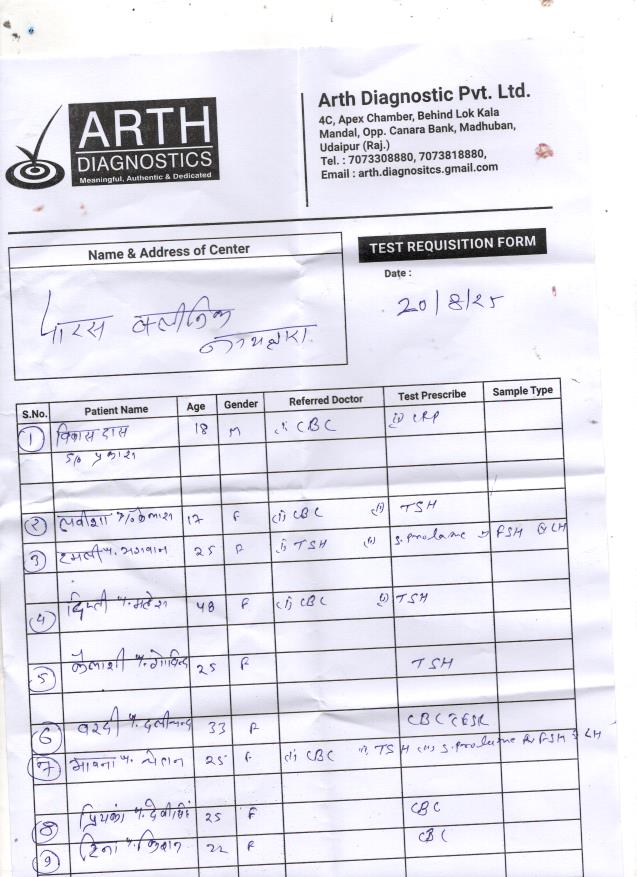 ARTH
DIAGNOSTICS
Meaningful, Authentic & Dedicated
Arth Diagnostic Pvt. Ltd.
4C, Apex Chamber, Behind Lok Kala
Mandal, Opp. Canara Bank, Madhuban,
Udaipur (Raj.)
Tel. : 7073308880, 7073818880,
Email : arth.diagnositcs.gmail.com
Name & Address of Center
TEST REQUISITION FORM
पारस क्लीनिक
नाथद्वारा
Date :
20/8/25
S.No. Patient Name Age Gender Referred Doctor Test Prescribe Sample Type
1 विकास दास 18 M (i) CBC (ii) CRP
S/o प्रकाश
2 कैलाश 17 F (i) CBC (ii) TSH
3 भगवान 25 F (i) TSH (ii) FSH LH
4 दिप्ती महेश 48 F (i) CBC (ii) TSH
5 कैलाशी गोविन्द 25 F TSH
6 वरदी 33 F CBC ESR
7 भावना 25 F (i) CBC (ii) TSH (iii) FSH LH
8 प्रियंका देवीसिंह 25 F CBC
9 रिना किशन 22 F CBC